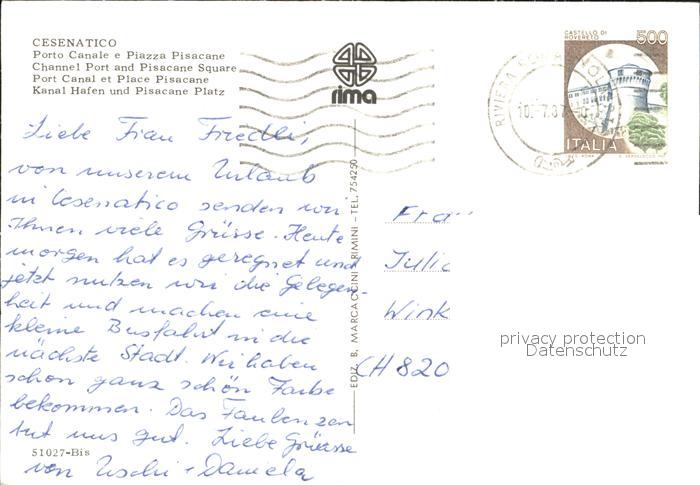 CESENATICO
Porto Canale e Piazza Pisacane
Channel Port and Pisacane Square
Port Canal et Place Pisacane
Kanal Hafen und Pisacane Platz
rima
CASTELLO DI
ROVERETO
500
ITALIA
RIVIERA
Liebe Frau Friedli,
von unserem Urlaub
in Cesenatico senden wir
Ihnen viele Grüsse. Heute
morgen hat es geregnet und
jetzt nutzen wir die Gelegen-
heit und machen eine
kleine Busfahrt in die
nächste Stadt. Wir haben
schon ganz schön Farbe
bekommen. Das Faulenzen
tut uns gut. Liebe Grüsse
von Uschi + Daniela
51027-Bis
EDIZ. B. MARCACCINI - RIMINI - TEL. 754250
Frau
Julie
Wink
CH 820
privacy protection
Datenschutz